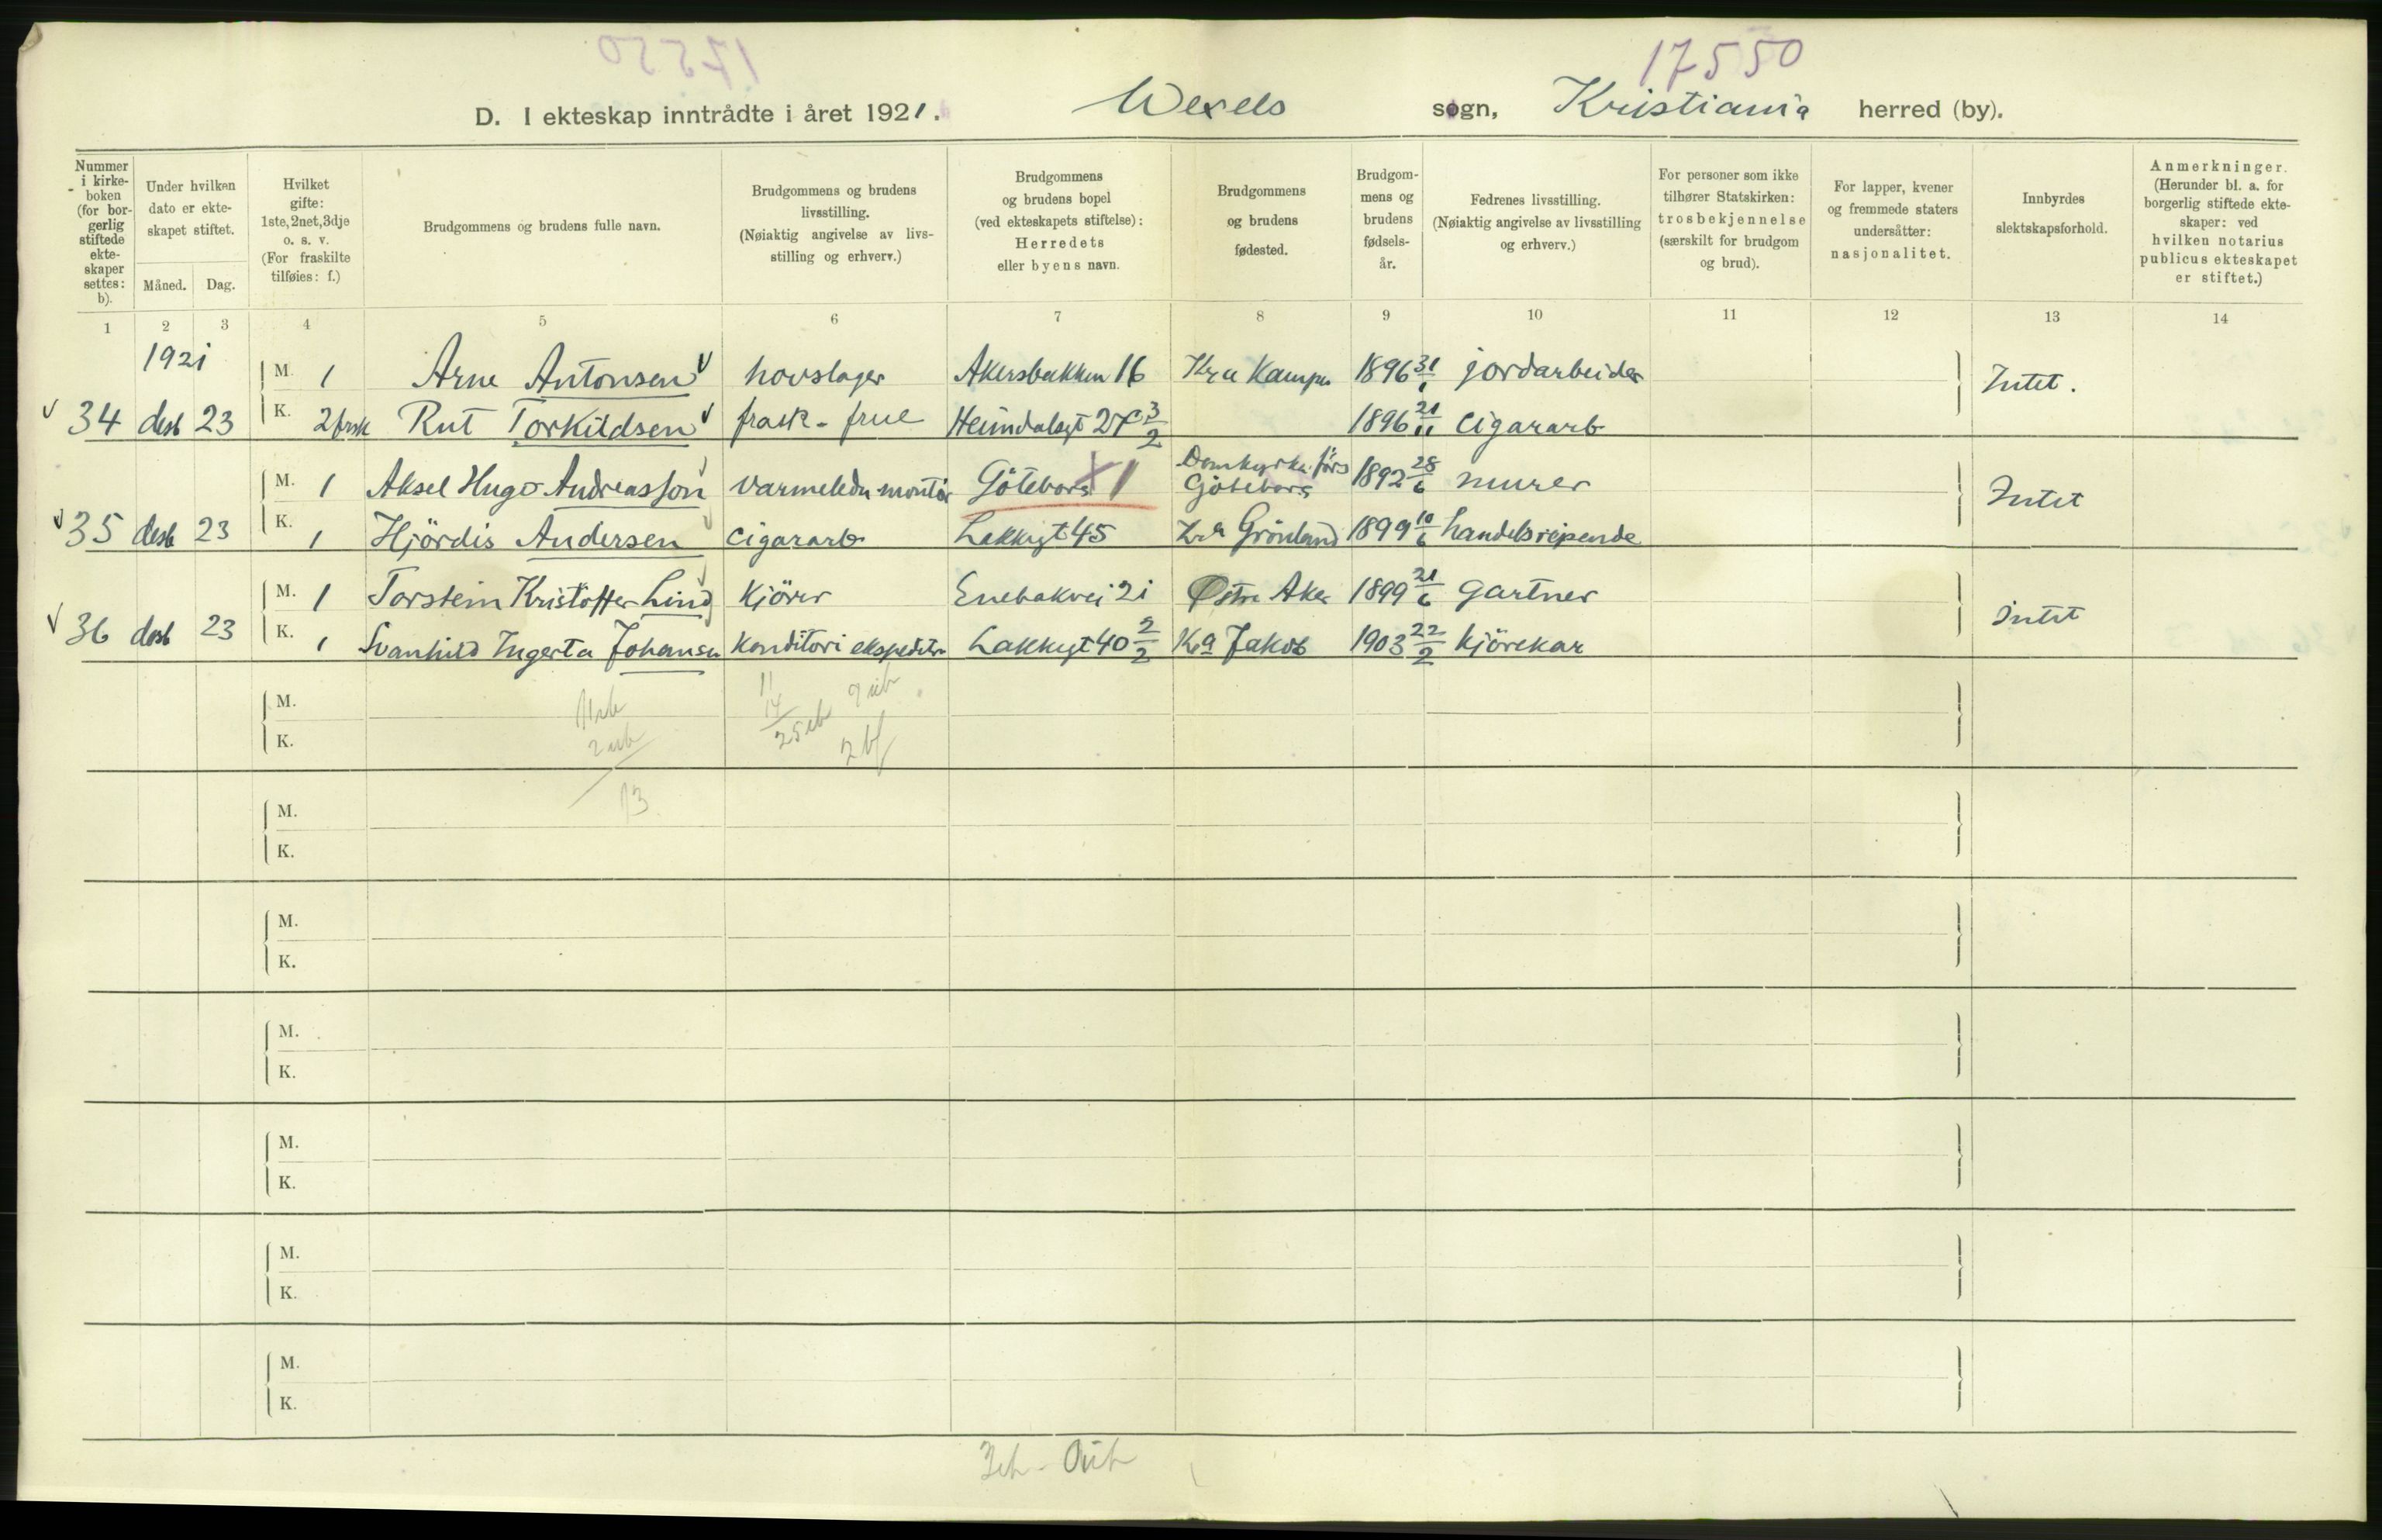 17550
D. I ekteskap inntrådte i året 1921. Wexels sogn, Kristiania herred (by).
Nummer i kirke-boken (for bor-gerlig stiftede ekte-skaper settes: b).
Under hvilken dato er ekte-skapet stiftet.
Måned. Dag.
Hvilket gifte: 1ste, 2net, 3dje o. s. v. (For fraskilte tilføies: f.)
Brudgommens og brudens fulle navn.
Brudgommens og brudens livsstilling. (Nøiaktig angivelse av livs-stilling og erhverv.)
Brudgommens og brudens bopel (ved ekteskapets stiftelse): Herredets eller byens navn.
Brudgommens og brudens fødested.
Brudgom-mens og brudens fødsels-år.
Fedrenes livsstilling. (Nøiaktig angivelse av livsstilling og erhverv.)
For personer som ikke tilhører Statskirken: trosbekjennelse (særskilt for brudgom og brud).
For lapper, kvener og fremmede staters undersåtter: nasjonalitet.
Innbyrdes slektskapsforhold.
Anmerkninger. (Herunder bl. a. for borgerlig stiftede ekte-skaper: ved hvilken notarius publicus ekteskapet er stiftet.)
1 2 3 4 5 6 7 8 9 10 11 12 13 14
1921
M. 1 Arne Antonsen hovslager Akersbakken 16 Kra Kampen 1896 31/1 jordarbeider Intet.
34 desb 23 K. 2 frsk Rut Torkildsen frask. frue Heimdalsgt 27 3/2 1896 21/11 cigararb
M. 1 Aksel Hugo Andreasson varmeledn montør Göteborg 1 Domkyrko förs Göteborg 1892 28/6 murer Intet
35 desb 23 K. 1 Hjördis Andersen cigararb Lakkegt 45 Kra Grönland 1899 10/6 handelsreisende
M. 1 Torstein Kristoffer Lind kjörer Enebakvei 21 Østre Aker 1899 21/6 gartner Intet
36 desb 23 K. 1 Svanhild Ingerta Johansen konditori ekspeditr Lakkegt 40 2/2 Kra Jakob 1903 22/2 kjörekar
M.
K.
13
M.
K.
M.
K.
M.
K.
M.
K.
M.
K.
M.
K.